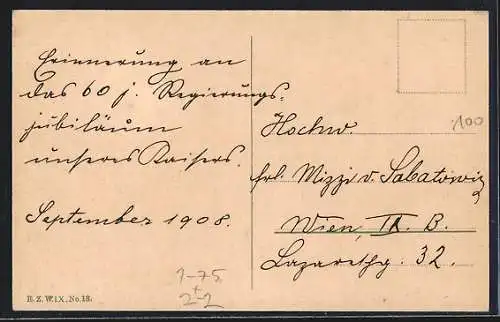 Erinnerung an
das 60 j. Regierungs-
jubiläum
unseres Kaisers.
September 1908.
B. Z. W. IX., No. 13.
1-75
+
2-2
100
Hochw.
Frl. Mizzi v. Sabatowicz
Wien, IX. B.
Lazarethg. 32.